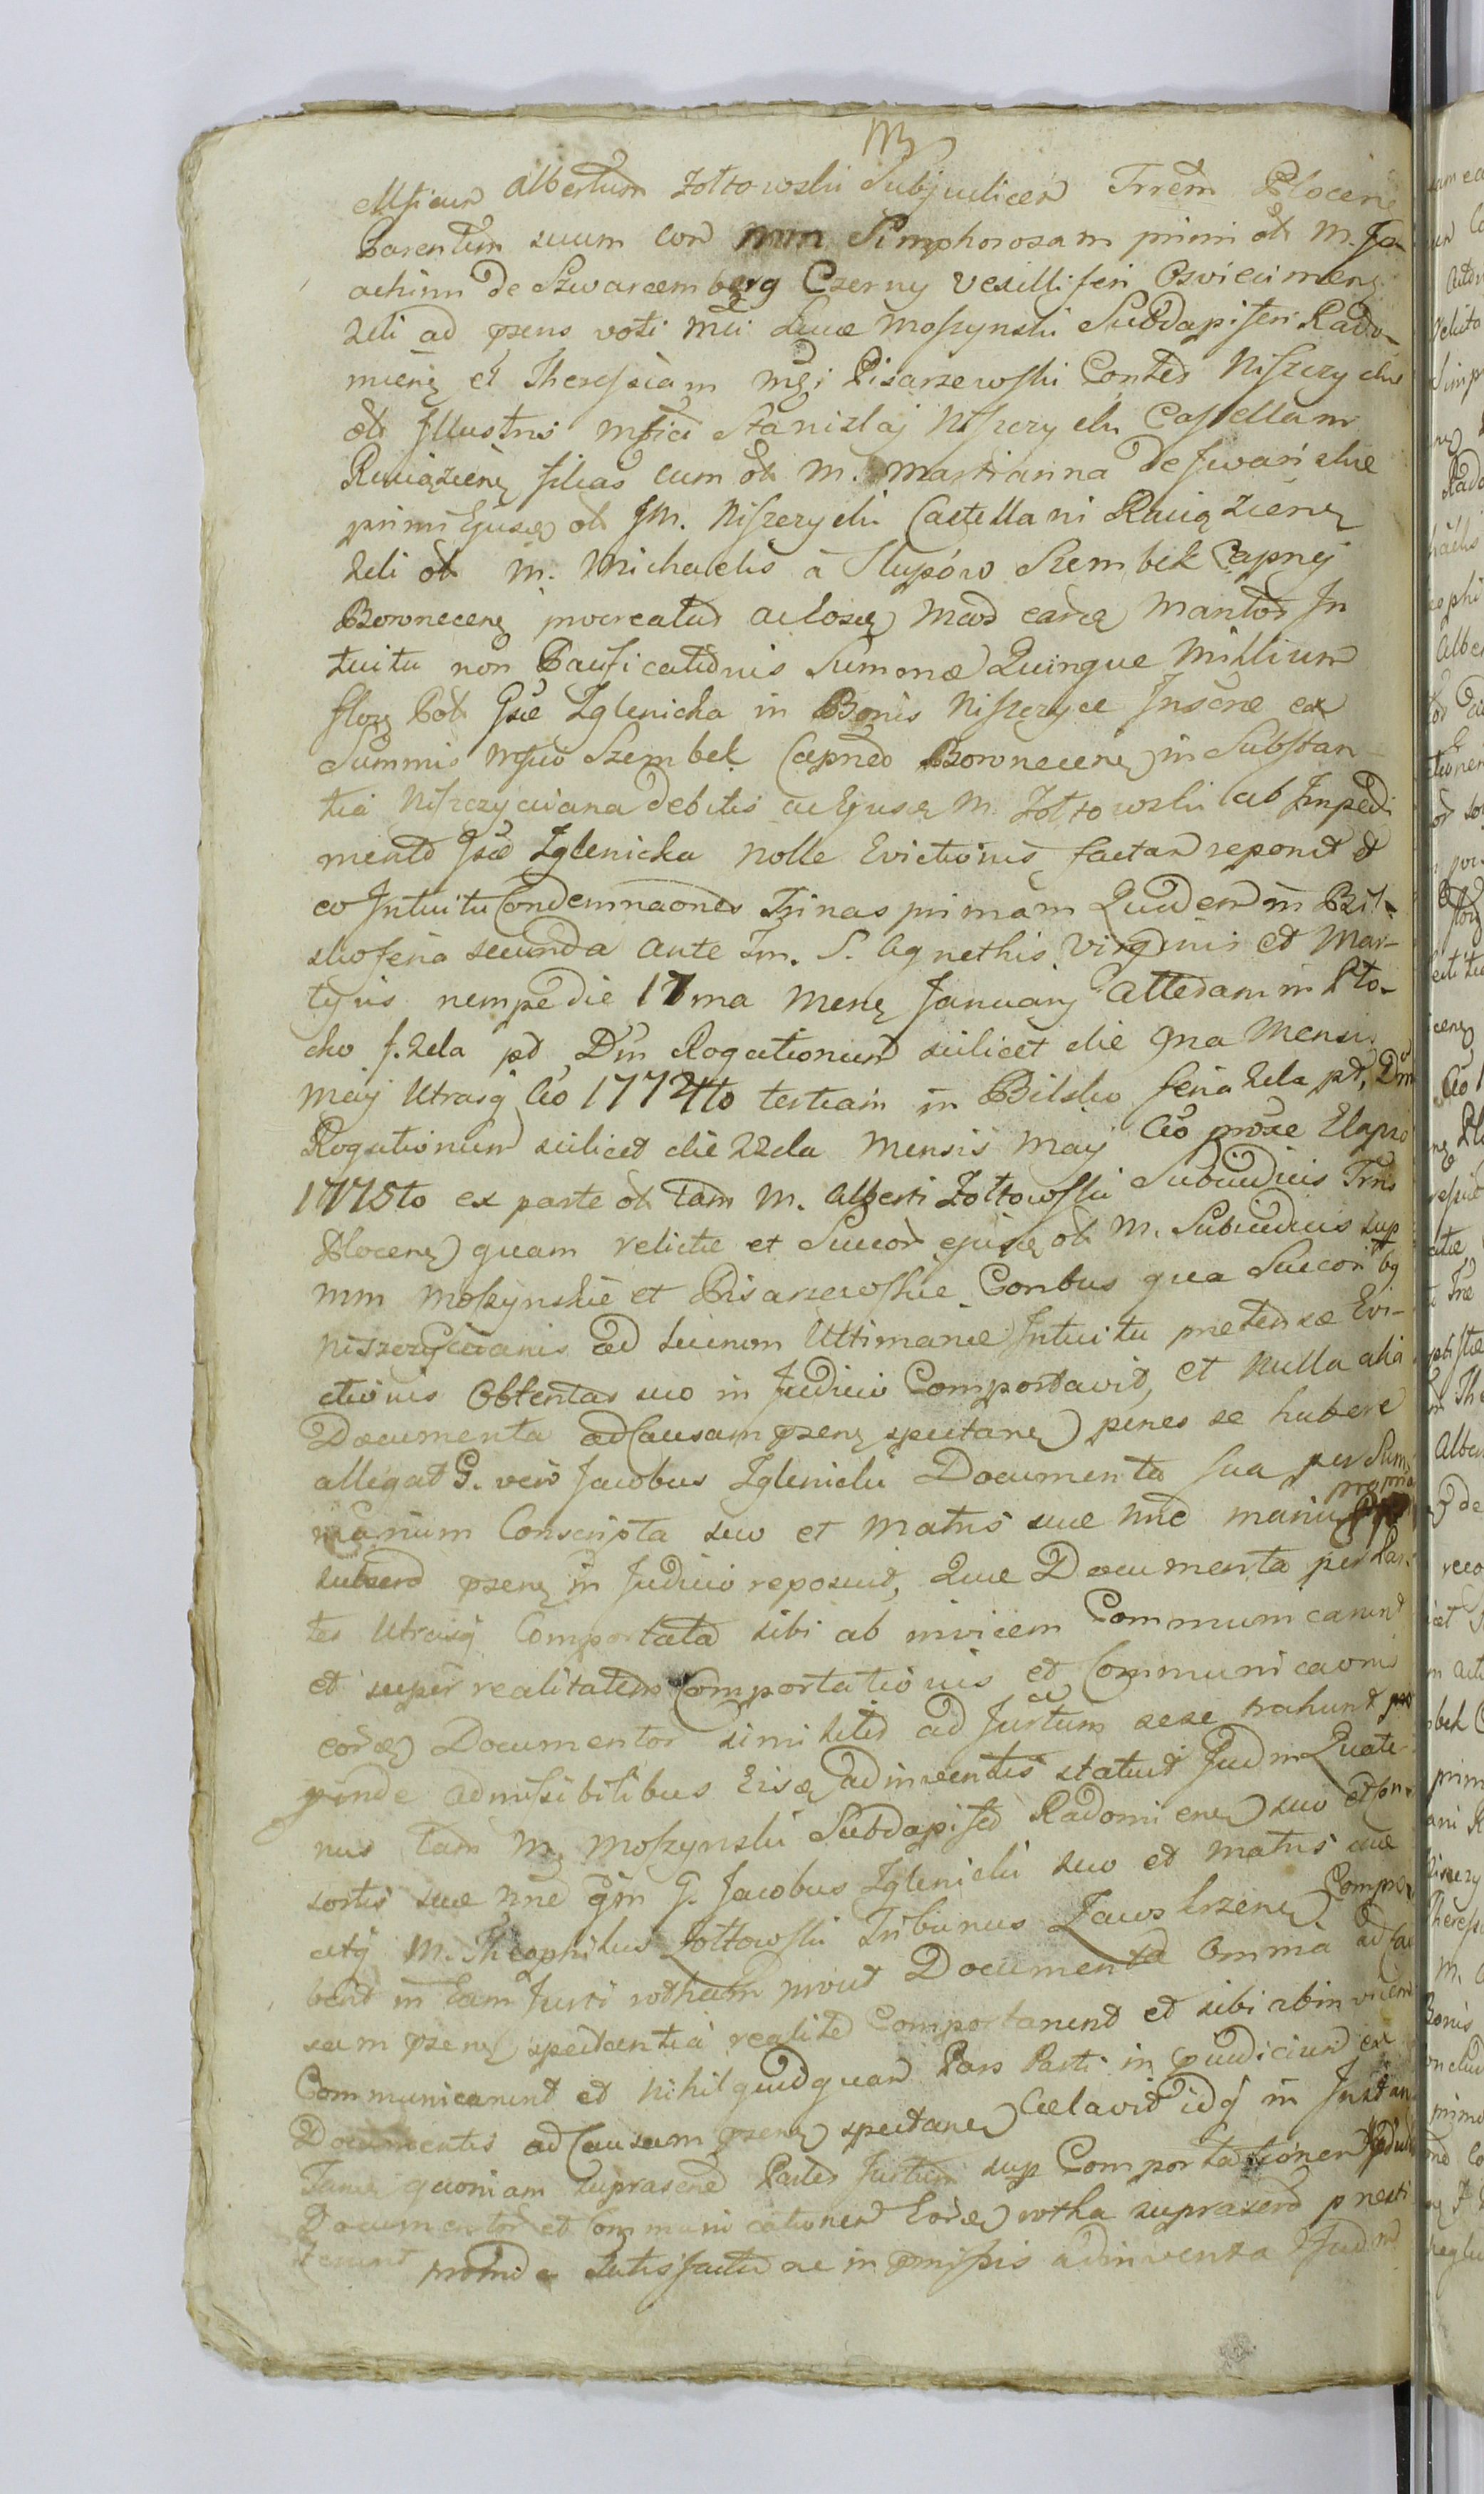 M
Mficum Albertum Zołtowski Subjudicem Trrem Plocenę
Parentem suum con mm Simphorosam primi ol. M. Jo-
achimi De Szwarcemberg Czerny Vexilliferi Oswiecimenę
2di ad prsens voti Mci Lucæ Moszynski Subdapiferi Rado-
mienę et Theressiam Mgi Pisarzewski Contes Niszczyckie
ol. Illustris Mfici Stanislaj Niszczycki Castellani
Raciązienę filias cum ol. M. Martianna De Iwańskie
primi Ejusq ol. JM. Niszczycki Castellani Raciązienę
2di ol. M. Michaelis à Słupów Szembek Capnej
Borownecenę procreatas ac losq mod earq maritos In
tuitu non Pacificationis Summæ Quingue Millium
florę Pol. Gsæ Zglenicka in Bonis Niszczyce Inscræ ex
Summis Mfico Szembek Capneo Borownecenę in Substan-
tia Niszczyciana debitis ac Ejusq M. Zołtowski ab Impedi
mento Gsæ Zglenicka nolle Evictionis factam reponit et
eo Intuitu Condemnaones Trinas primam Quidem in Bil-
sko feria secunda ante Fm. S. Agnethis Virginis et Mar-
tyris nempe die 17ma Menę January alteram in Pło-
cko f. 2da pt Dm Rogationum scilicet die 9na Mensis
Maij Utrasq Ao 1774to tertiam in Bilsko feria 2da pt Dm
Rogationum scilicet die 22da Mensis Maij Ao proxe Elapso
1775to ex parte ol. tam M. Alberti Zołtowski Subiudicis Trris
Plocenę quam relictæ et Succor ejusq ol. M. Subiudicis sup
mm Moszynskie et Pisarzewskie Conbus qua Succoribq
Niszczycianis ad Ultimanæ Intuitu prætensæ Evi-
ctionis Obtentas suo in Judicio Comportavit, et nulla alia
Documenta ad Causam prsenę spectanę penes se habere
allegat G. vero Jacobus Zglenicki Documenta sua per Sum
marium Conscripta suo et Matris suæ nne manu propria
subscro prsenę in Judicio reposuit, Quæ Documenta per Par-
tes Utrasq Comportata sibi ab invicem Communicarunt
et super realitatem Comportationis et Communicaonis
eorq Documentor similiter ad Jurtum sese trahunt
proinde admisibilibus Eisq adinventis statuit Judm Quate
nus tam M. Moszynski Subdapifer Radomienę suo et con-
sortis suæ nne qm G. Jacobus Zglenicki suo et Matris suæ
atq M. Theophilus Zołtowski Tribunus Zawskrzenę Compro-
bent in Eam Jurti rotham prout Documenta Omnia ad Cau
sam prsenę spectantia realiter Comportarunt et sibi abinvicem
Communicarunt et nihil quidquam Pars Parti in præiudicium ex
Documentis ad Causam prsenę spectanę Celavit idq in Instan
Tanę quoniam suprascræ Partes Jurtum sup Comportationem
Documentor et Communicationem Eorq rotha suprascro præsti
terunt proinde satisfactio ac in præmissis adinventa Judm